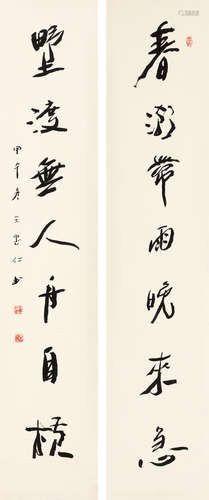 春潮帶雨晚來急
野渡無人舟自橫
甲午春 王忠仁書